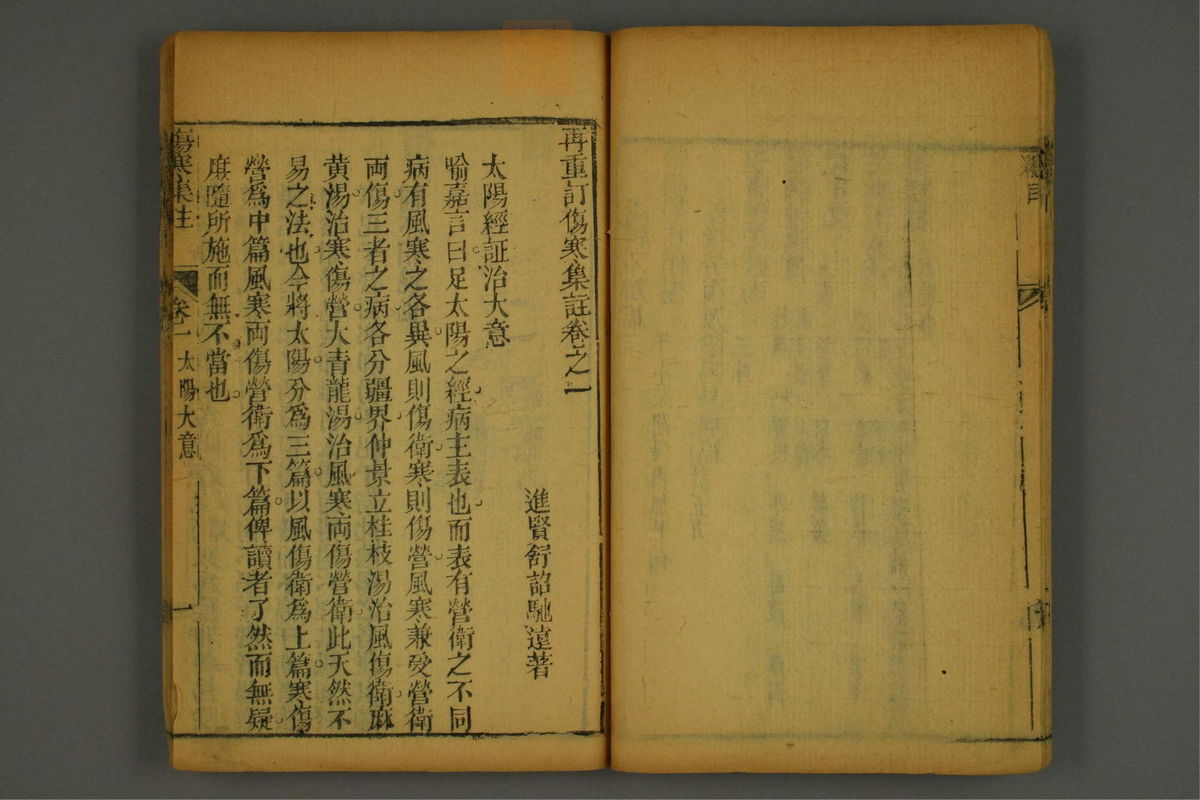 再重訂傷寒集註卷之一
進賢舒詔馳遠著
太陽經証治大意
喻嘉言曰足太陽之經病主表也而表有營衛之不同
病有風寒之各異風則傷衛寒則傷營風寒兼受營衛
両傷三者之病各分疆界仲景立桂枝湯治風傷衛麻
黄湯治寒傷營大青龍湯治風寒両傷營衛此天然不
易之法也今將太陽分爲三篇以風傷衛爲上篇寒傷
營爲中篇風寒両傷營衛爲下篇俾讀者了然而無疑
庻隨所施而無不當也
傷寒集註 卷一 太陽大意 一